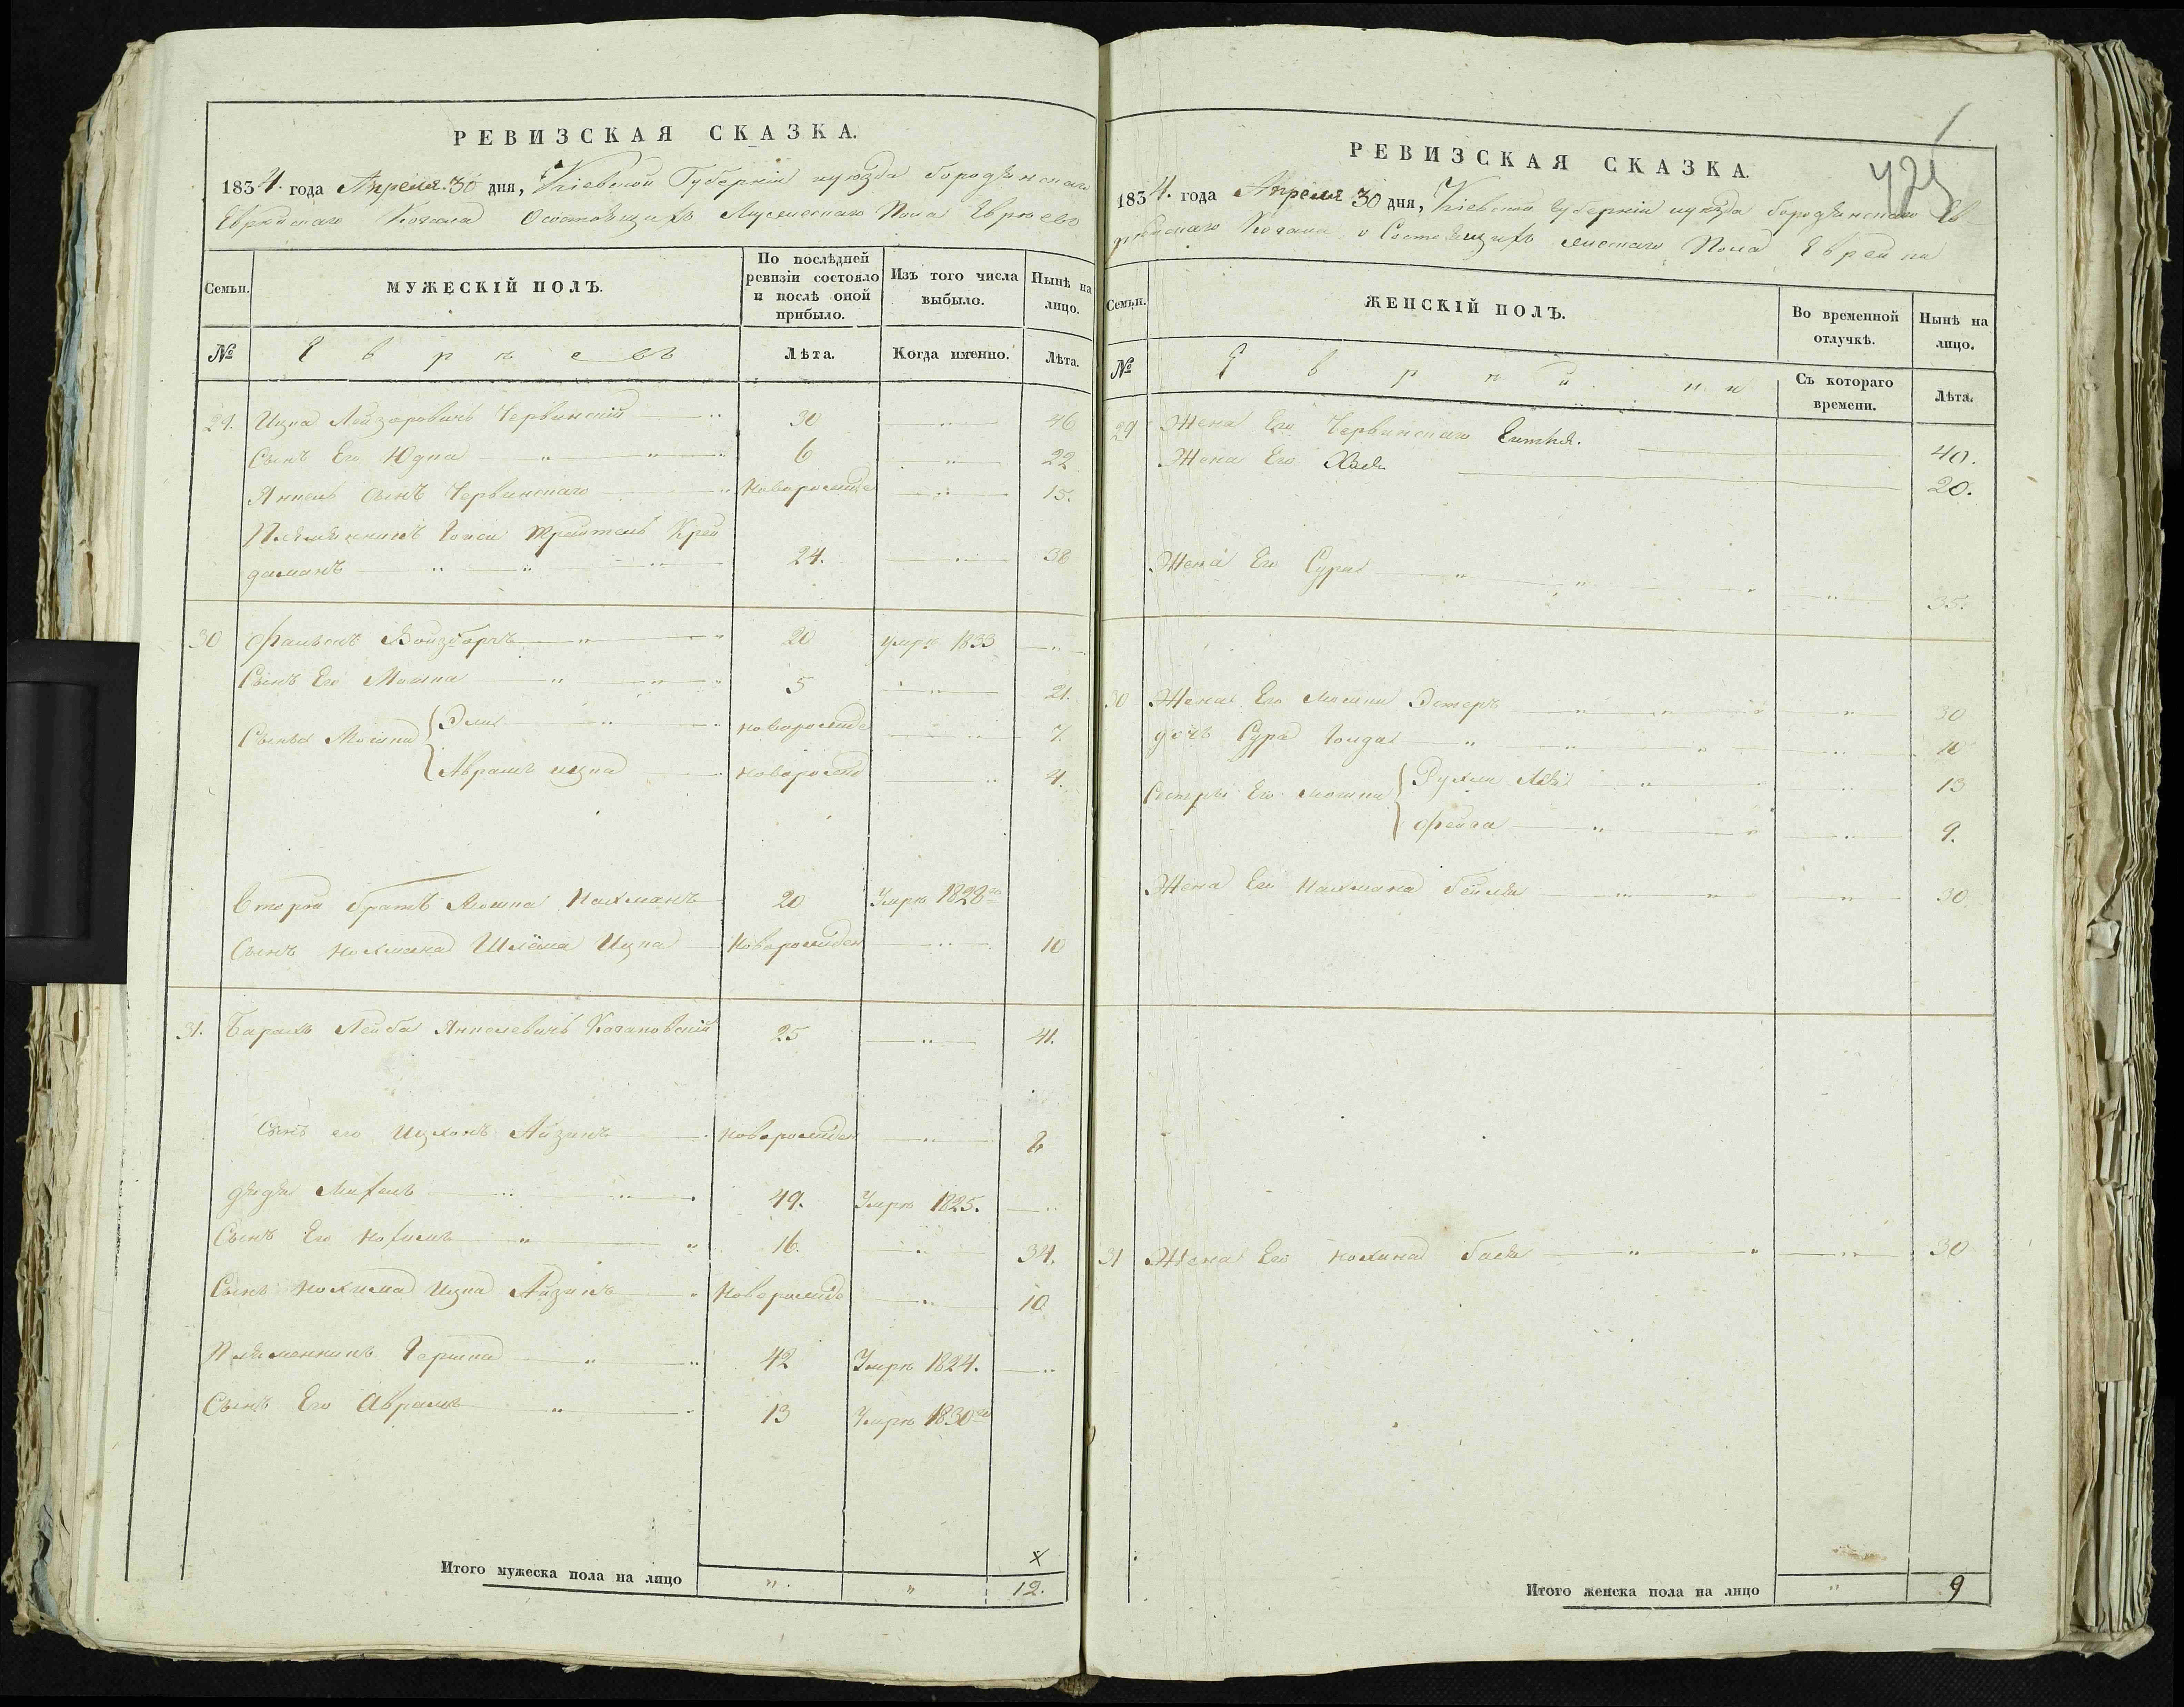 РЕВИЗСКАЯ СКАЗКА.
1834. года Апреля 30 дня, Кіевской Губерніи и уѣзда бородянскаго
Еврейскаго Кагала О состоящихъ Мужескаго Пола Евреевъ
Семьи.
МУЖЕСКІЙ ПОЛЪ.
По послѣдней ревизіи состояло и послѣ оной прибыло.
Изъ того числа выбыло.
Нынѣ на лицо.
№
Евреевъ
Лѣта.
Когда именно.
Лѣта.
29. Ицка Лейзоровичъ Червинскій 30 46
Сынъ Его Юдка 6 22
Янкель сынъ Червинскаго Новорожде 15.
Племянникъ Трейтель Край
даманъ 24. 38
30 Войзбортъ 20 умре 1833
Сынъ Его Мошка 5 21.
Сынья Мошка Эли новорожде 7.
Аврамъ ицка новорожде 4.
Второй братъ Мошка Нахманъ 20 Умре 1828го
Сынъ нохмана Шлёма Ицка Новорожден 10
31. Барахъ Лейба Янкелевичъ Кагановскій 25 41.
Сынъ его Ицхокъ Айзикъ новорожден
дядя 49. Умре 1825.
Сынъ Его 16. 34.
Сынъ нохима Ицка Айзикъ Новорожде 10
Племянникъ Гершка 42 Умре 1824.
Сынъ Его Аврамъ 13 Умре 1830го
х
Итого мужеска пола на лицо 12.
425
РЕВИЗСКАЯ СКАЗКА.
1834. года Апреля 30 дня, Кіевской губерніи и уѣзда бородянскаго Ев
рейскаго Кагала о Состоящихъ женскаго Пола Еврейки
Семьи.
ЖЕНСКІЙ ПОЛЪ.
Во временной отлучкѣ.
Нынѣ на лицо.
№
Еврейки
Съ котораго времени.
Лѣта.
29 Жена Его Червинскаго 40.
Жена Его Хася 20.
Жена Его Сура 35.
30 Жена Его мошки Эстеръ 30
дочь Сура Голда 10
Сестры Его мошки Рухля 13
Фейга 9.
Жена Его Нахмана Бейля 30
31 Жена Его нохима Бася 30
Итого женска пола на лицо 9